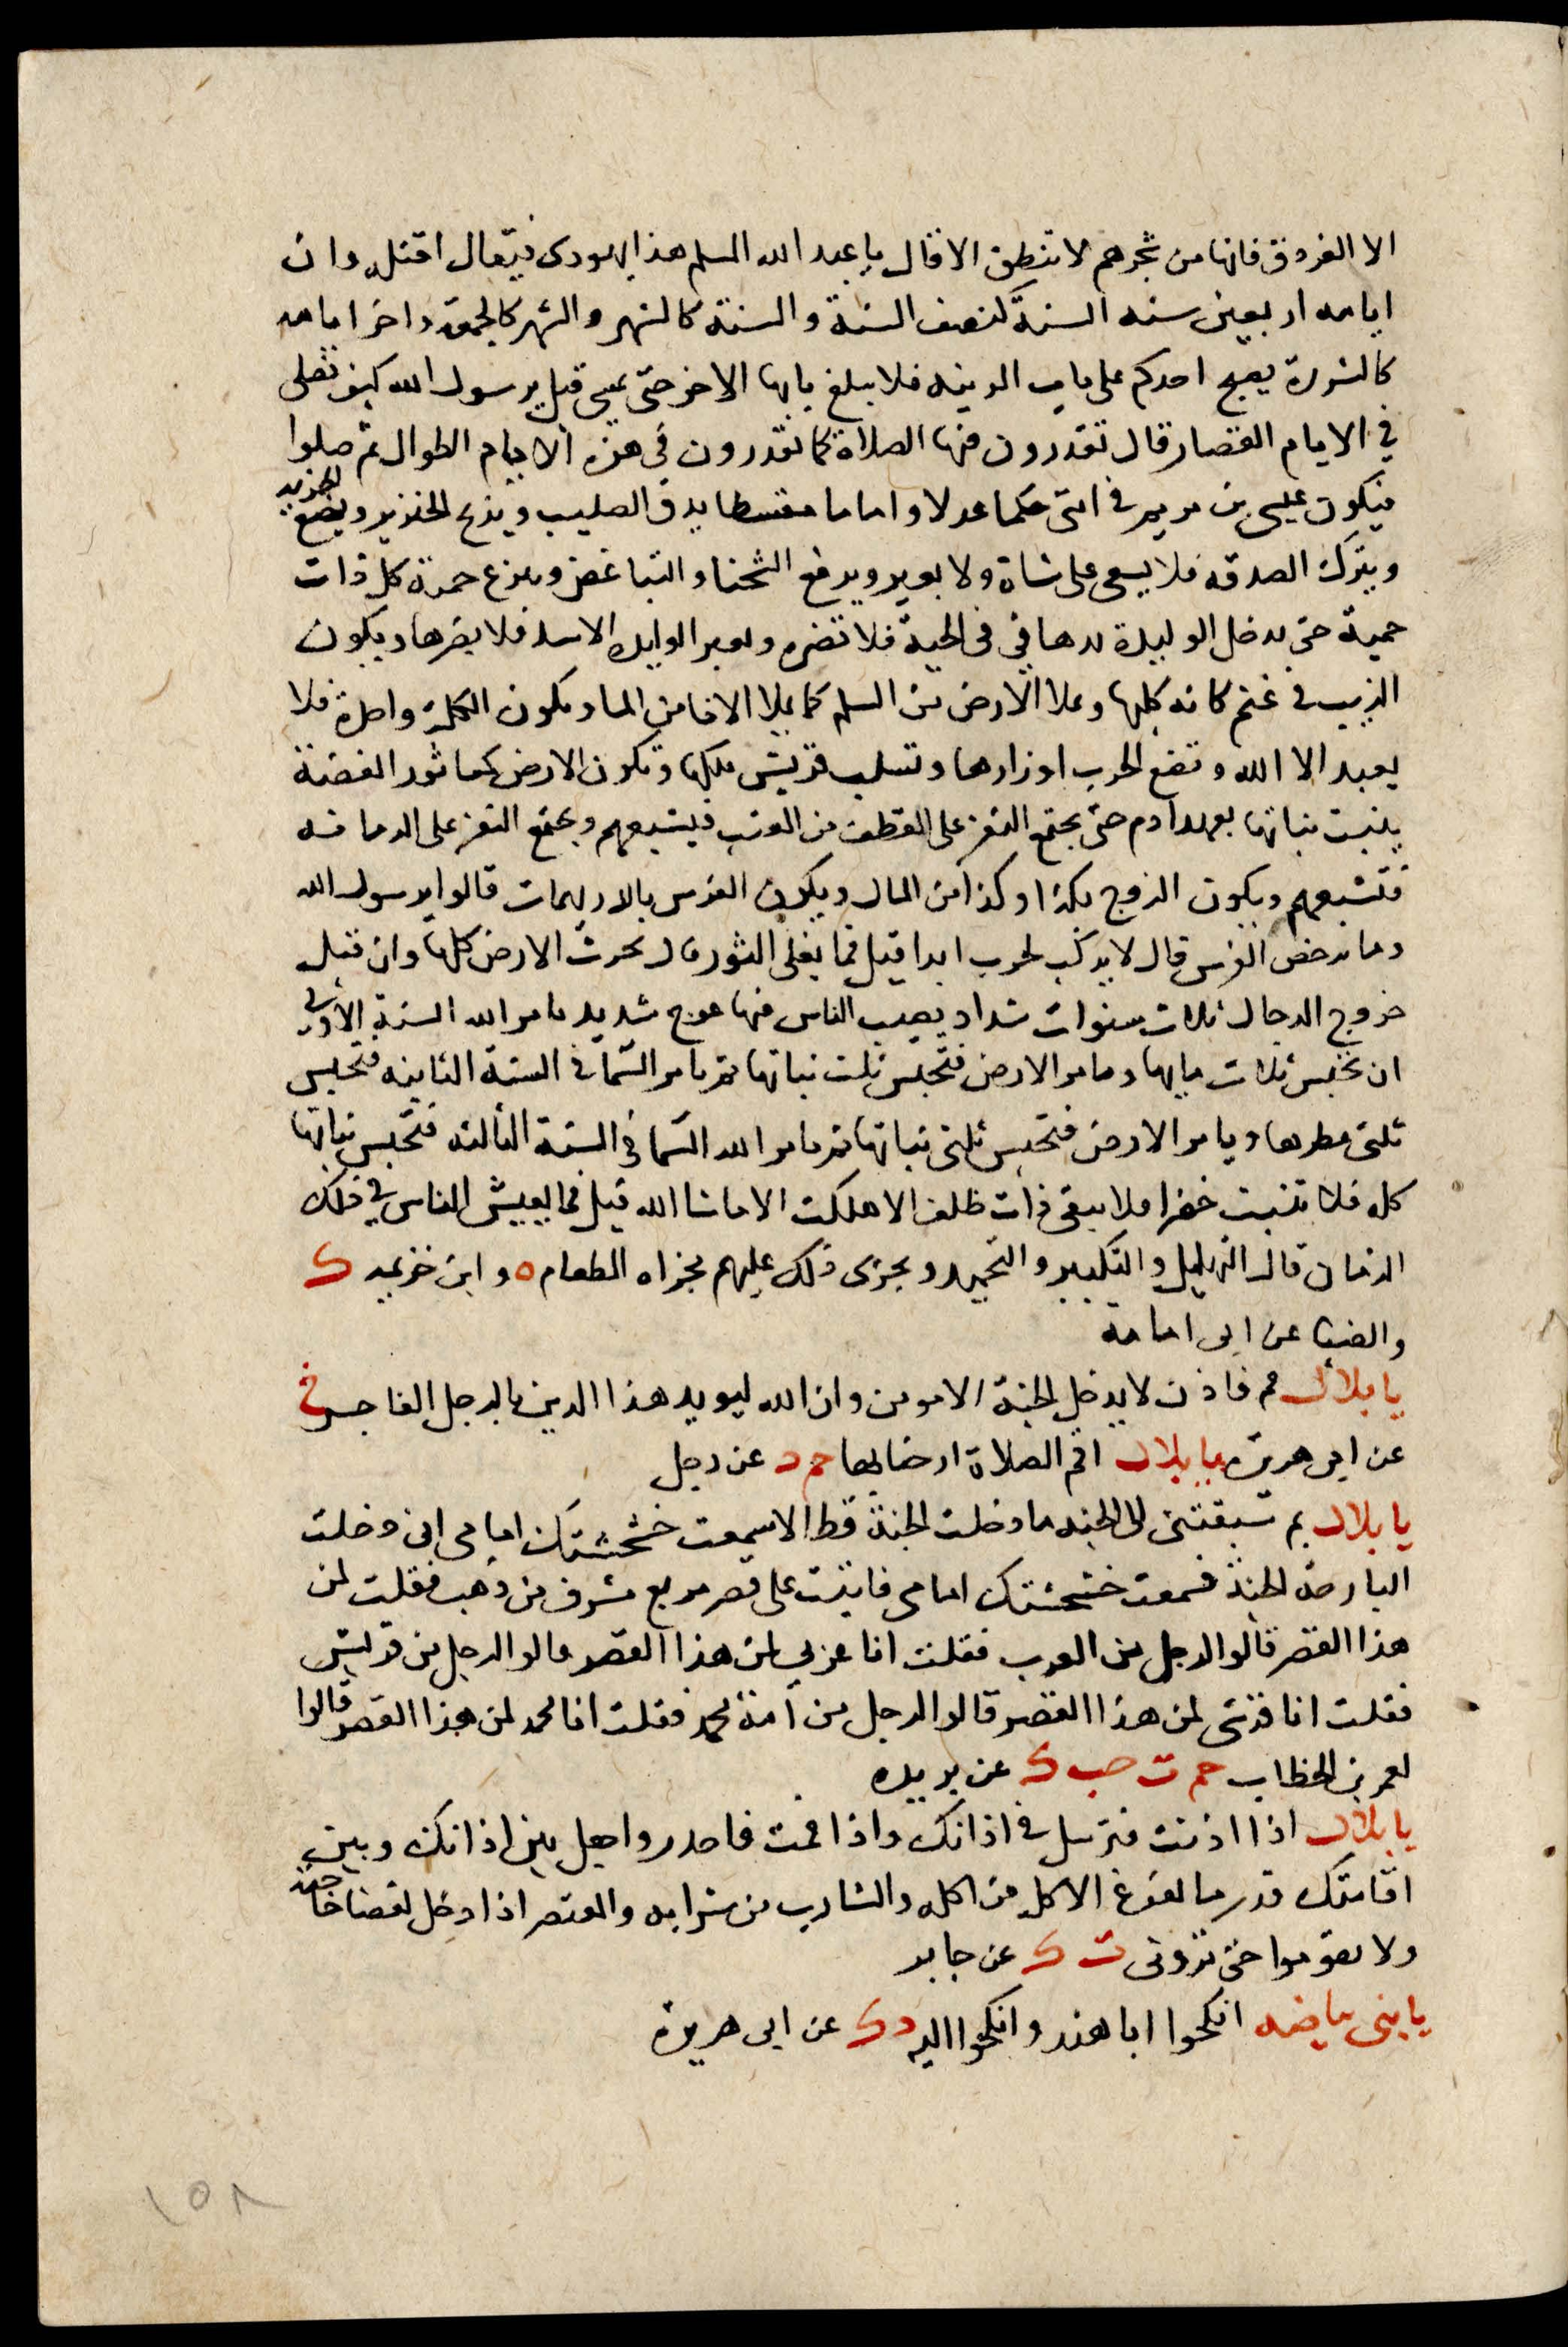 الا الغردق فانها من شجرهم لا تنطق الا قال يا عبد الله المسلم هذا يهودى فتعال اقتله وان
ايامه اربعين سنه السنة كنصف السنة والسنة كالشهر والشهر كالجمعة واخر ايامه
كالشررة يصبح احدكم على باب المدينه فلا يبلغ بابها الاخر حتى يمسى قيل يرسول الله كيف نصلى
فى الايام القصار قال تقدرون فيها الصلاة كما تقدرون فى هذه الايام الطوال ثم صلوا
فيكون عيسى بن مريم فى امتى حكما عدلا واماما مقسطا يدق الصليب ويذبح الخنزير ويضع الجزيه
ويترك الصدقه فلا يسعى على شاة ولا بعير ويرفع الشحنا والتباغض وينزع حمة كل ذات
حمية حتى يدخل الوليدة يدها فى فى الحية فلا تضره وتضر الوليده الاسد فلا يضرها ويكون
الذيب فى غنم كانه كلبها وتملا الارض من السلم كما يملا الانا من الما وتكون الكلمة واحدة فلا
يعبد الا الله وتضع الحرب اوزارها وتسلب قريش ملكها وتكون الارض كماثور الفضة
ينبت نباتها بعهد ادم حتى يجتمع النفر على القطف من العنب فيشبعهم ويجتمع النفر على الرمانه
فتشبعهم ويكون الزوج بكذا وكذا من المال ويكون الفرس بالدريهمات قالوا يرسول الله
وما يرخص الفرس قال لا يركب لحرب ابدا قيل فما يغلى الثور قال تحرث الارض كلها وان قبل
خروج الدجال ثلاث سنوات شداد يصيب الناس فيها جوع شديد يامر الله السنة الأولى
ان تحبس ثلاث مايها ويامر الارض فتحبس ثلث نباتها ثم يامر السما فى السنة الثانيه فتحبس
ثلثى مطرها ويامر الارض فتحبس ثلثى نباتها ثم يامر الله السما فى السنة الثالثه فتحبس نباتها
كله فلا تنبت خضرا فلا يبقى ذات ظلف الا هلكت الا ما شا الله قيل فما يعيش الناس فى ذلك
الزمان قال التهليل والتكبير والتحميد ويجزى ذلك عليهم مجزاه الطعام ه وابن خزيمه ك
والضيا عن ابى امامة
يا بلال قم فاذن لا يدخل الجنة الا مومن وان الله ليويد هذا الدين بالرجل الفاجر خ
عن ابى هريره يا بلال اقم الصلاة ارحنا بها حم د عن رجل
يا بلال بم سبقتنى الى الجنه ما دخلت الجنة قط الا سمعت خشخشتك امامى انى دخلت
البارحة الجنة فسمعت خشخشتك امامى فاتيت على قصر مربع مشرف من ذهب فقلت لمن
هذا القصر قالوا لرجل من العرب فقلت انا عربى لمن هذا القصر قالوا لرجل من قريش
فقلت انا قرشى لمن هذا القصر قالوا لرجل من أمة محمد فقلت انا محمد لمن هذا القصر قالوا
لعمر بن الخطاب حم ت حب ك عن بريده
يا بلال اذا اذنت فترسل فى اذانك واذا اقمت فاحدر واجعل بين اذانك وبين
اقامتك قدر ما يفرغ الاكل من اكله والشارب من شرابه والمعتصر اذا دخل لقضا حاجته
ولا تقوموا حتى ترونى ت ك عن جابر
يا بنى بياضه انكحوا ابا هند وانكحوا اليه د ك عن ابى هريرة
١٥٨